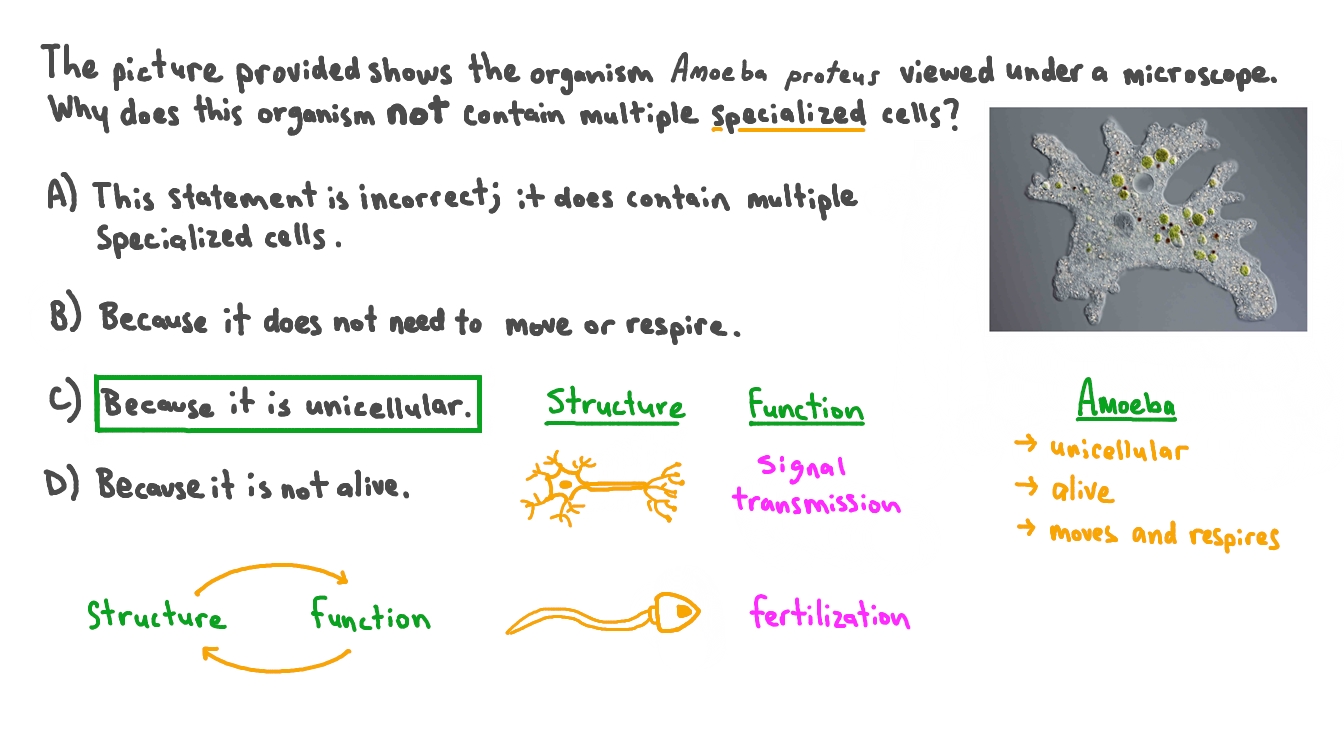 The picture provided shows the organism Amoeba proteus viewed under a microscope.
Why does this organism not contain multiple specialized cells?
A) This statement is incorrect; it does contain multiple
specialized cells.
B) Because it does not need to move or respire.
C) Because it is unicellular.
D) Because it is not alive.
Structure
Function
Signal
transmission
fertilization
Amoeba
→ unicellular
→ alive
→ moves and respires
Structure
function